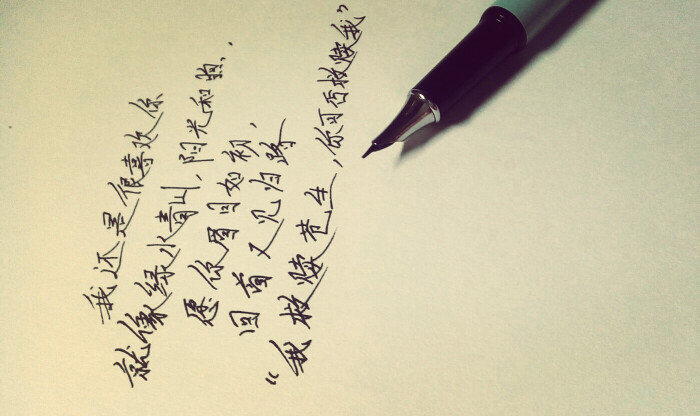 我还是很喜欢你
就像绿水青山,阳光和煦.
愿你眉目如初,
回首又见归路
“我救赎苍生,你可否救赎我”